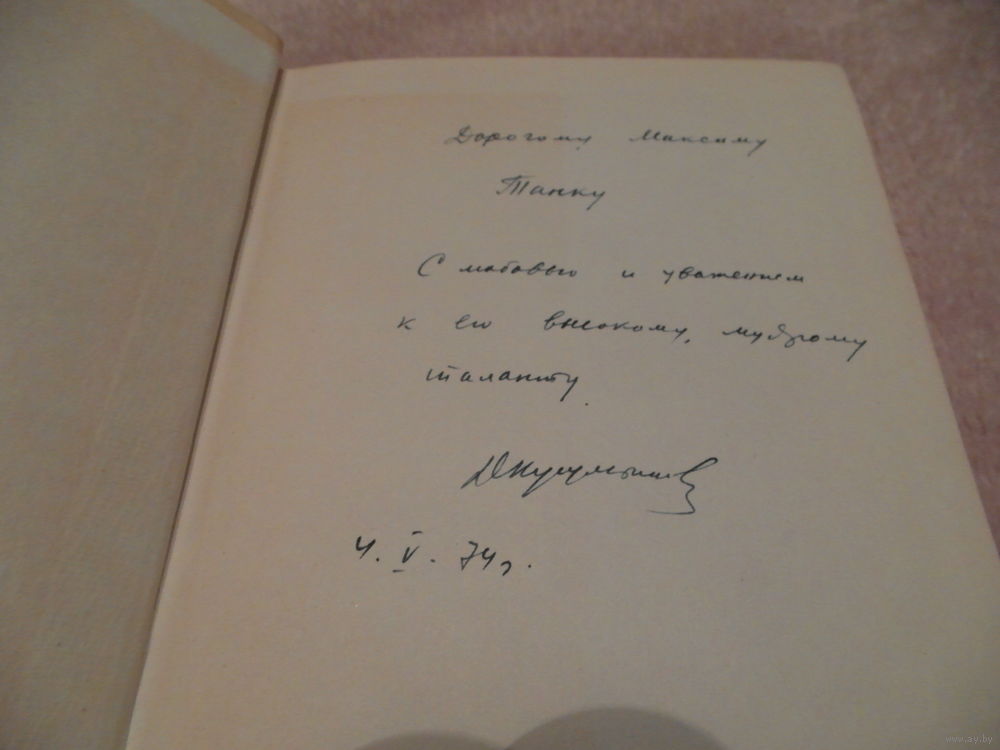 Дорогому Максиму
Танку
С любовью и уважением
к его высокому, мудрому
таланту.
ДКугультинов
4. V. 74 г.
www.ay.by